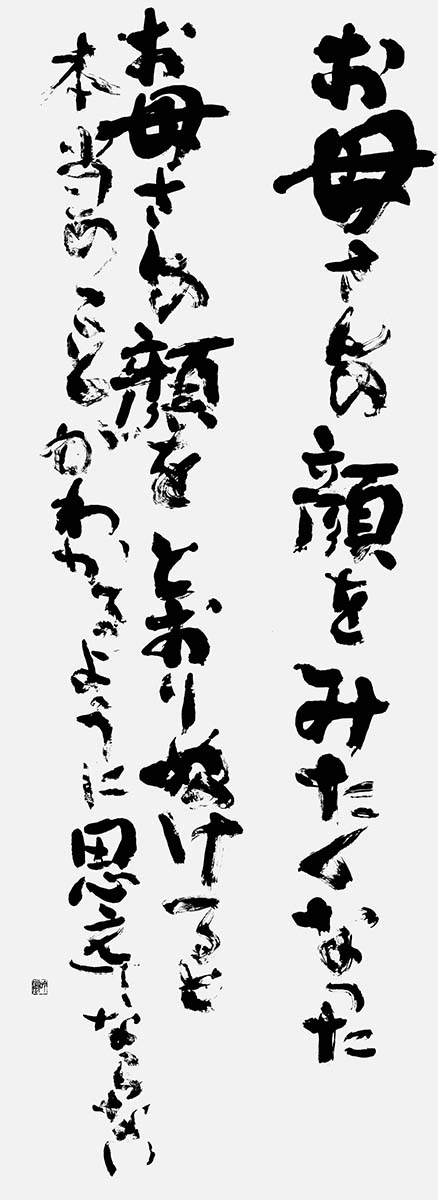 お母さんの顔をみたくなった
お母さんの顔をとおりぬけると
本当のことがわかるように思えてならない